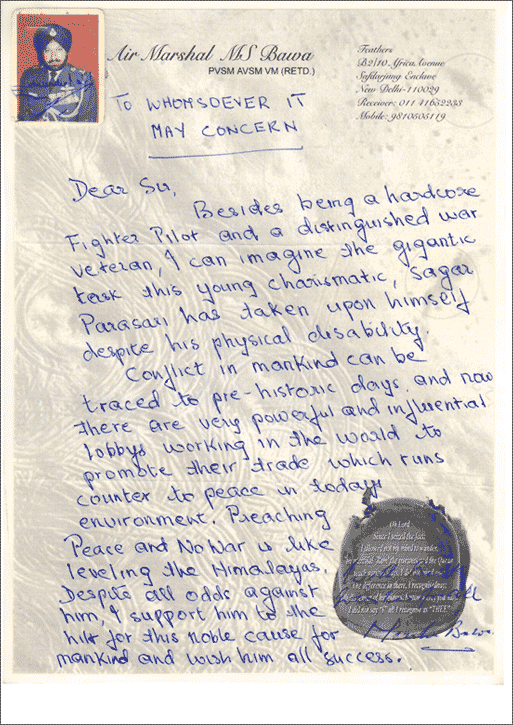 Air Marshal MS Bawa
PVSM AVSM VM (RETD.)
Feathers
B2/10 Africa Avenue
Safdarjang Enclave
New Delhi-110029
Receiver: 011 41652233
Mobile: 9810505119
TO WHOMSOEVER IT
MAY CONCERN
Dear Sir,
Besides being a hardcore
Fighter Pilot and a distinguished war
veteran, I can imagine the gigantic
task this young charismatic, Sagar
Parasari has taken upon himself
despite his physical disability.
Conflict in mankind can be
traced to pre-historic days and now
there are very powerful and influential
lobbys working in the world to
promote their trade which runs
counter to peace in todays
environment. Preaching
Peace and No War is like
leveling the Himalayas.
Despite all odds against
him, I support him to the
hilt for this noble cause for
mankind and wish him all success.
Oh Lord
Since I seized the fact;
I allowed not my mind to wander,
I did not say "I" all I recognise is "THEE"